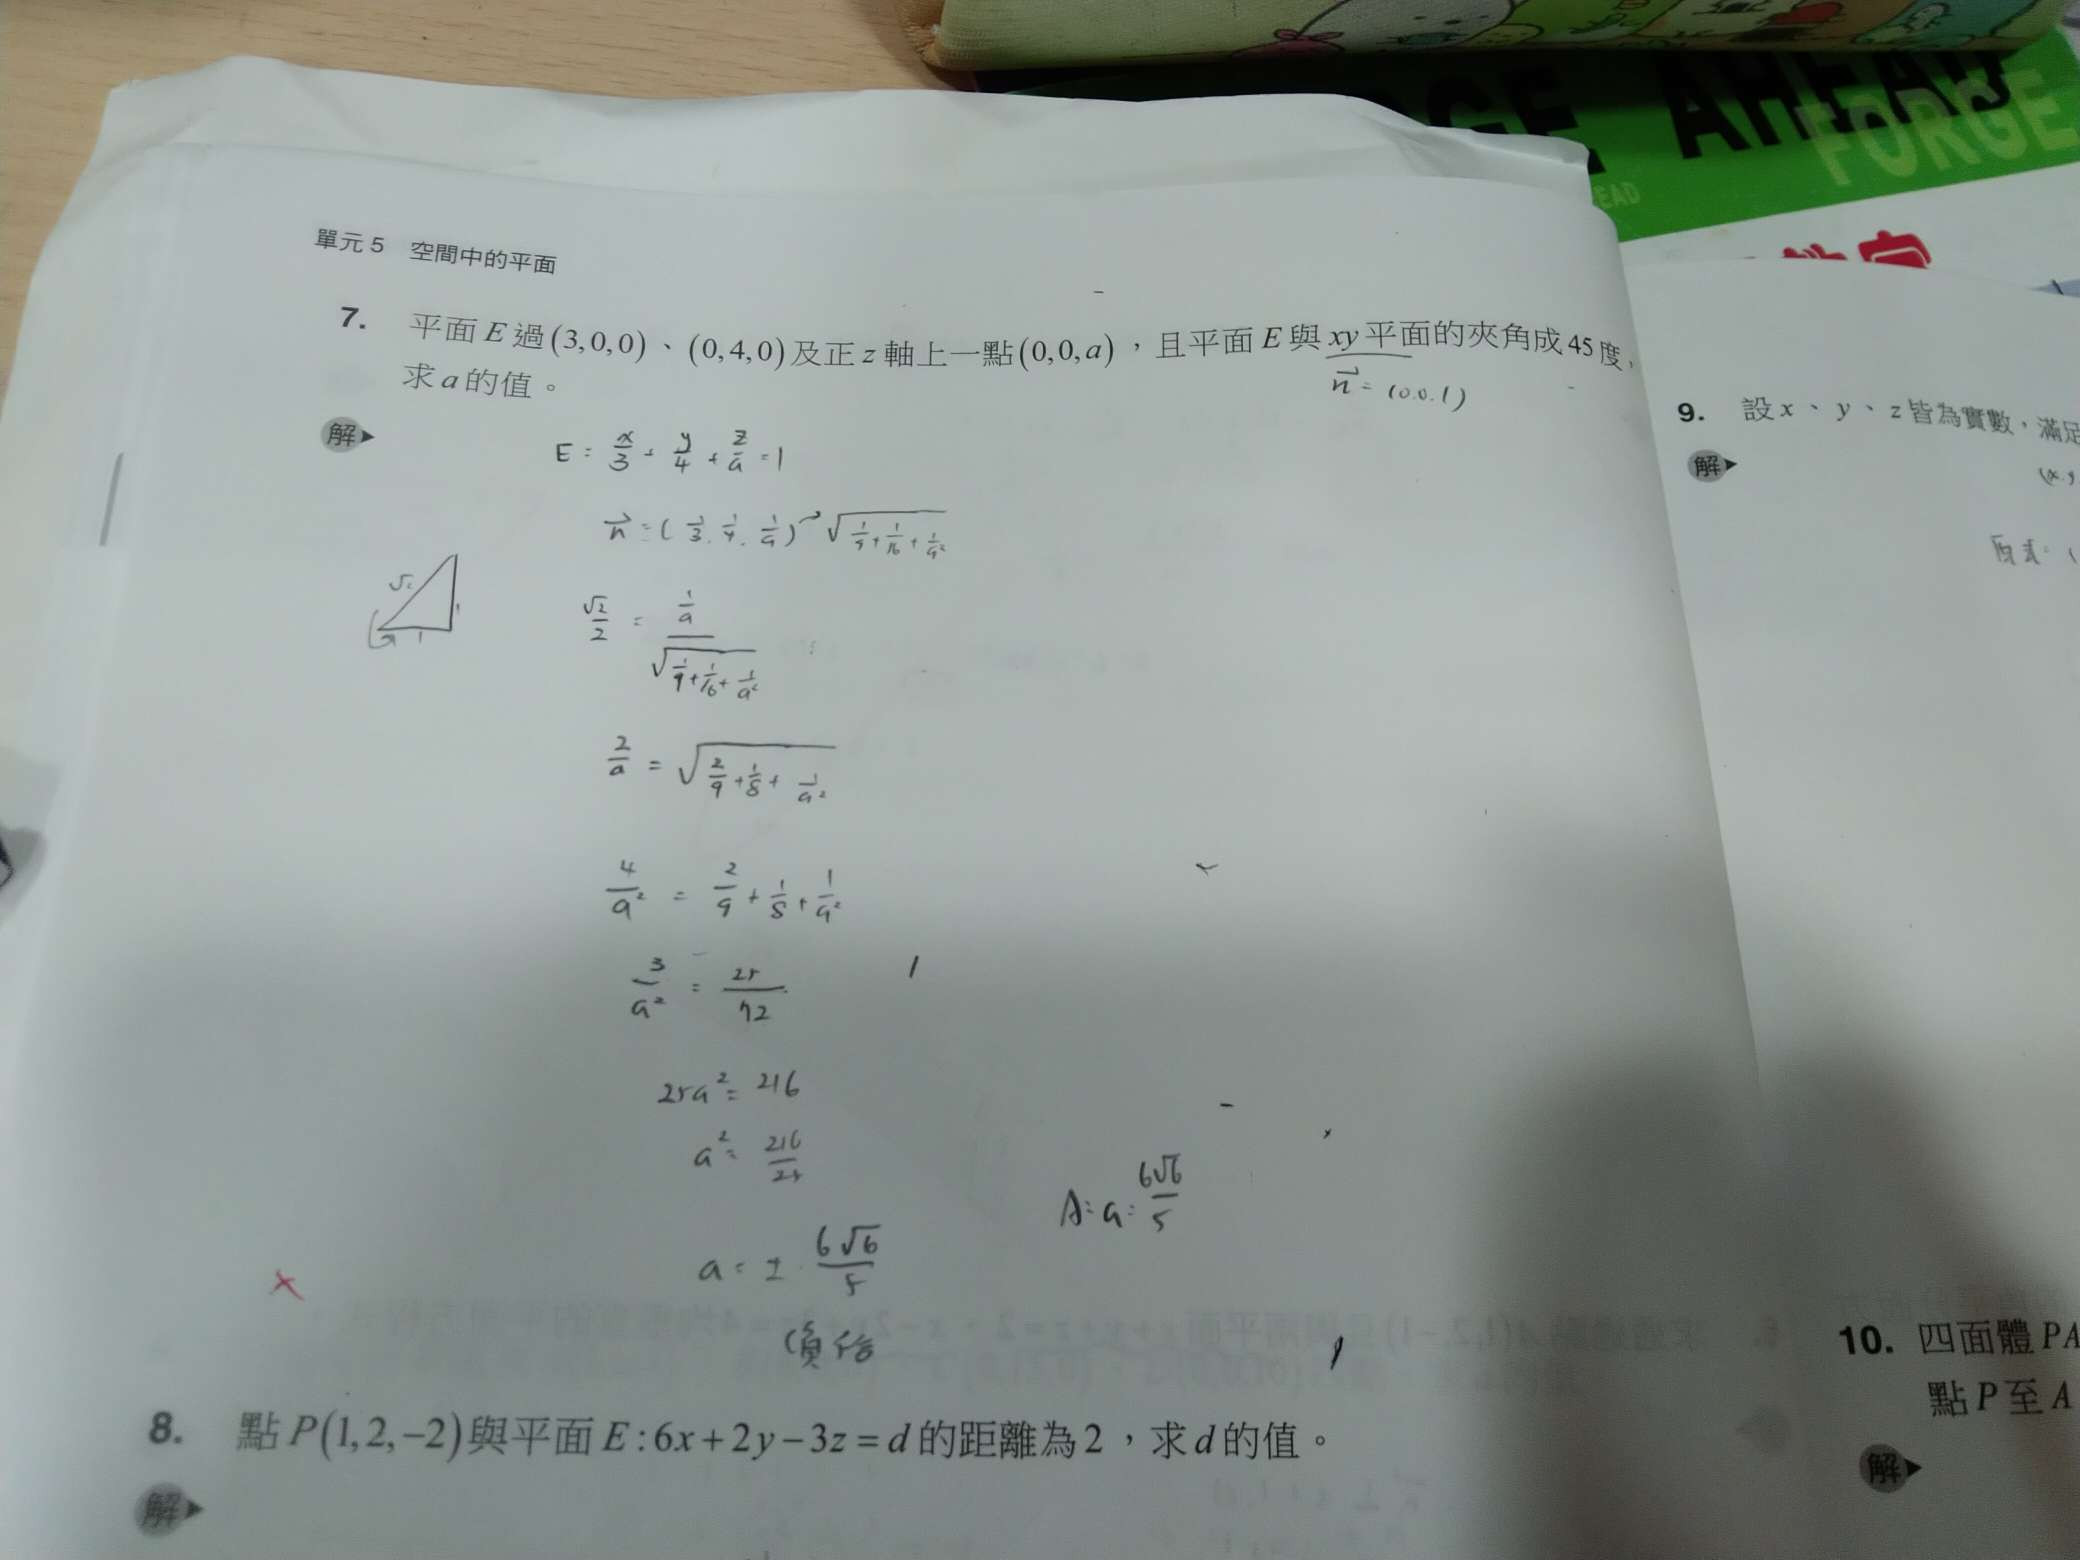 GE AHEAD
FORGE
EAD
單元 5 空間中的平面
7. 平面 E 過 (3,0,0)、(0,4,0) 及正 z 軸上一點 (0,0,a),且平面 E 與 xy 平面的夾角成 45 度,
求 a 的值。
n⃗ = (0.0.1)
解
E : x/3 + y/4 + z/a = 1
n⃗ = (1/3, 1/4, 1/a) → √(1/9 + 1/16 + 1/a²)
√2
1
1
√2/2 = (1/a) / √(1/9 + 1/16 + 1/a²)
2/a = √(2/9 + 1/8 + 1/a²)
4/a² = 2/9 + 1/8 + 1/a²
3/a² = 25/72
25a² = 216
a² = 216/25
a = ± 6√6/5
(負不合
A: a = 6√6/5
8. 點 P(1,2,−2) 與平面 E : 6x + 2y − 3z = d 的距離為 2,求 d 的值。
解
9. 設 x、y、z 皆為實數,滿足
解
(x.y
原式 = (
10. 四面體 PA
點 P 至 A
解